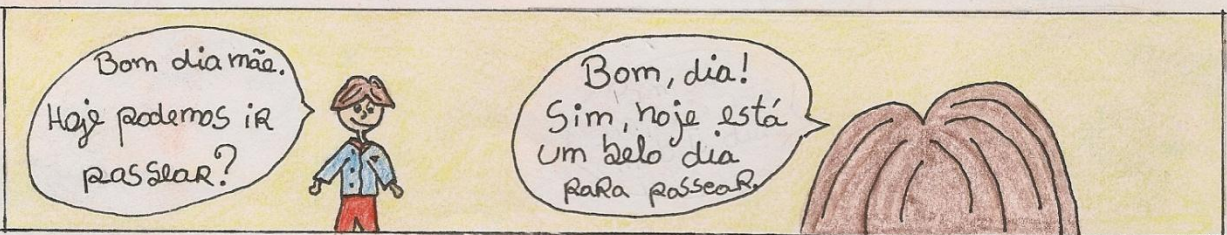 Bom dia mãe.
Hoje podemos iR
passeaR?
Bom, dia!
Sim, hoje está
um belo dia
paRa passeaR.